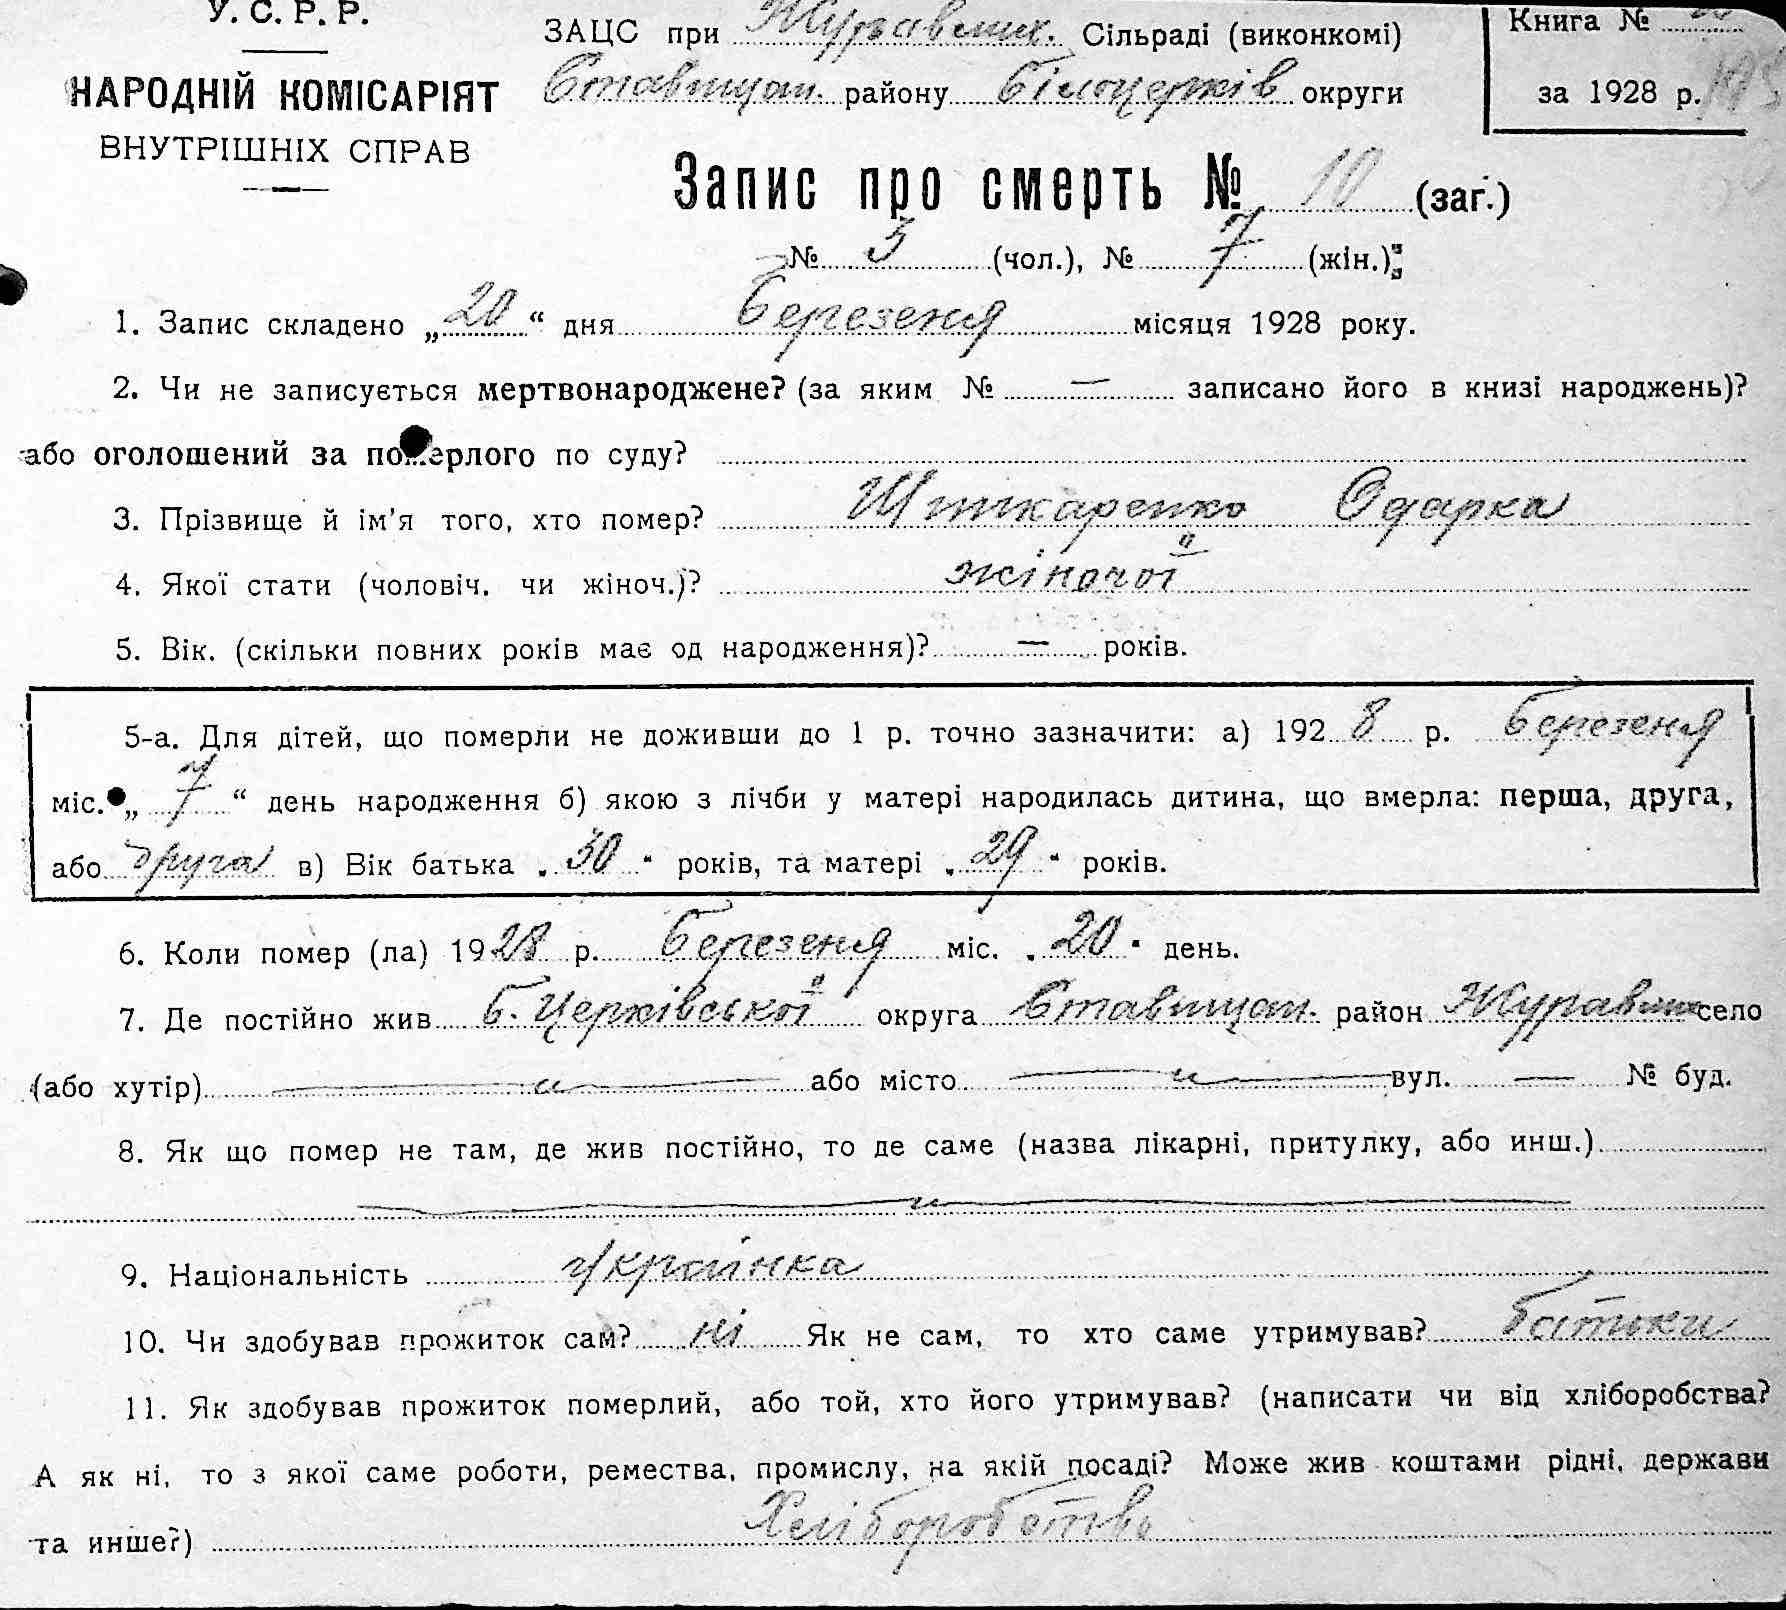 У. С. Р. Р.
НАРОДНІЙ КОМІСАРІЯТ
ВНУТРІШНІХ СПРАВ
ЗАЦС при Журавлих. Сільраді (виконкомі)
Ставищан. району Білоцерків округи
Книга №
за 1928 р.
Запис про смерть № 10 (заг.)
№ 3 (чол.), № 7 (жін.);
1. Запис складено „20“ дня Березеня місяця 1928 року.
2. Чи не записується мертвонароджене? (за яким № — записано його в книзі народжень)?
або оголошений за померлого по суду?
3. Прізвище й ім'я того, хто помер? Одарка
4. Якої стати (чоловіч. чи жіноч.)? жіночої
5. Вік. (скільки повних років має од народження)? — років.
5-а. Для дітей, що померли не доживши до 1 р. точно зазначити: а) 1928 р. Березеня
міс. „7“ день народження б) якою з лічби у матері народилась дитина, що вмерла: перша, друга,
або друга в) Вік батька „30“ років, та матері „29“ років.
6. Коли помер (ла) 1928 р. Березеня міс. „20“ день.
7. Де постійно жив Б. Церківської округа Ставищан. район село
(або хутір) — або місто — вул. — № буд.
8. Як що помер не там, де жив постійно, то де саме (назва лікарні, притулку, або инш.)
—
9. Національність Українка
10. Чи здобував прожиток сам? ні Як не сам, то хто саме утримував? батьки
11. Як здобував прожиток померлий, або той, хто його утримував? (написати чи від хліборобства?
А як ні, то з якої саме роботи, ремества, промислу, на якій посаді? Може жив коштами рідні, держави
та инше?) Хліборобство